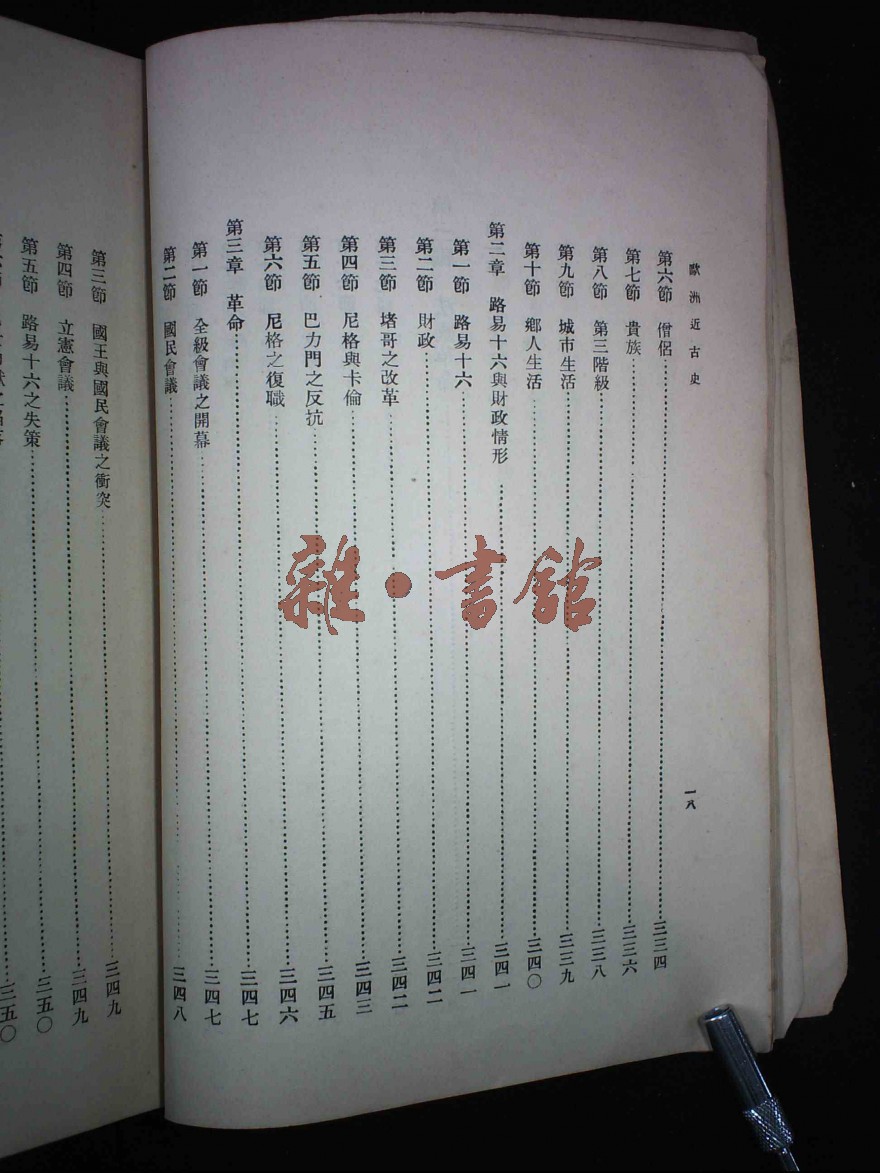 歐洲近古史
一八
第六節 僧侶……三三四
第七節 貴族……三三六
第八節 第三階級……三三八
第九節 城市生活……三三九
第十節 鄉人生活……三四〇
第二章 路易十六與財政情形……三四一
第一節 路易十六……三四一
第二節 財政……三四二
第三節 堵哥之改革……三四二
第四節 尼格與卡倫……三四三
第五節 巴力門之反抗……三四五
第六節 尼格之復職……三四六
第三章 革命……三四七
第一節 全級會議之開幕……三四七
第二節 國民會議……三四八
第三節 國王與國民會議之衝突……三四九
第四節 立憲會議……三四九
第五節 路易十六之失策……三五〇
雜·書館